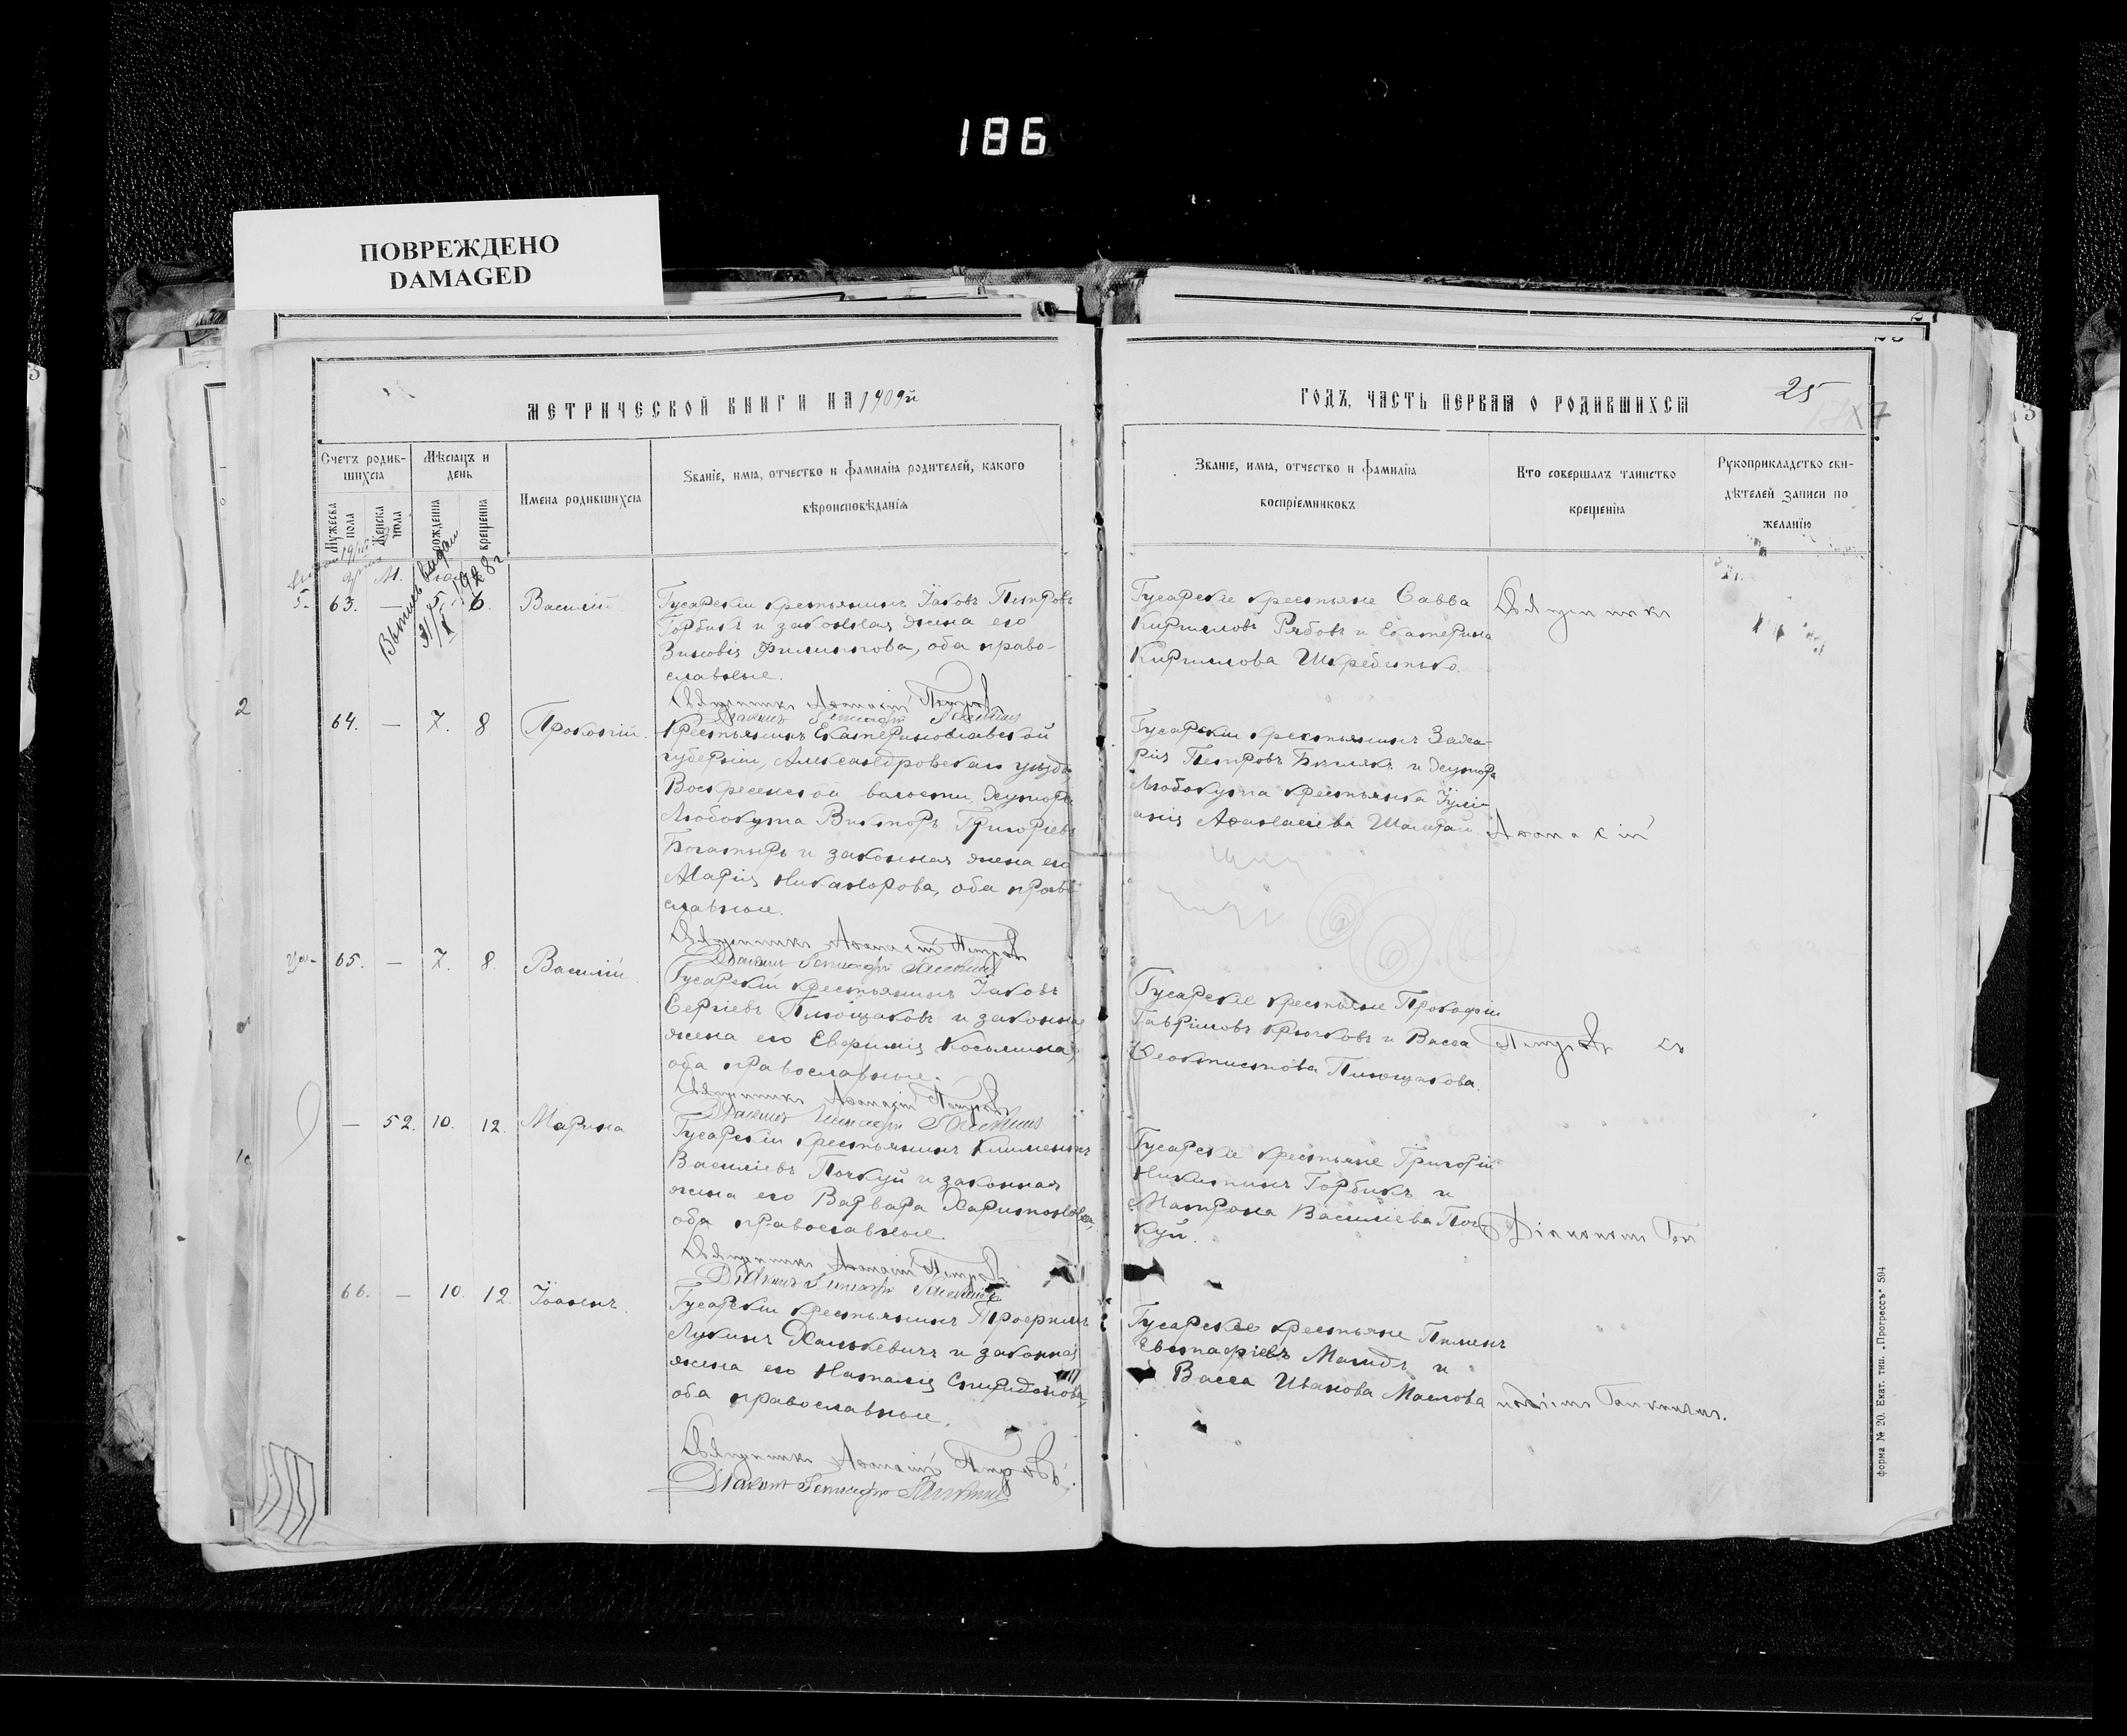 186
ПОВРЕЖДЕНО
DAMAGED
МЕТРИЧЕСКОЙ КНИГИ НА 1909й
ГОДЪ, ЧАСТЬ ПЕРВАЯ О РОДИВШИХСЯ
25
Счетъ родив-
шихся
Мѣсяцъ и
день
Мужеска
пола
Женска
пола
рожденія
крещенія
Имена родившихся
Званіе, имя, отчество и фамилія родителей, какого
вѣроисповѣданія
Званіе, имя, отчество и фамилія
воспріемниковъ
Кто совершалъ таинство
крещенія
Рукоприкладство сви-
дѣтелей записи по
желанію
63. — 5. 6. Василій
Гусарскій крестьянинъ Іаковъ Петровъ
Горбикъ и законная жена его
Зиновія Филиппова, оба право-
славные.
Священникъ Аѳанасій Петровъ
Гусарскіе крестьяне Савва
Кирилловъ Рябовъ и Екатерина
Кириллова Шкребетько.
Священникъ
64. — 7. 8 Прокопій.
Крестьянинъ Екатеринославской
губерніи, Александровскаго уѣзда,
Воскресенской волости, хутора
Любокута Викторъ Григоріевъ
Богатырь и законная жена его
Марія Никанорова, оба право-
славные.
Священникъ Аѳанасій Петровъ
Гусарскій крестьянинъ Заха-
рія Петровъ и хутора
Любокута крестьянка Іулі-
анія Аѳанасіева
Аѳанасій
65. — 7. 8. Василій
Гусарскій крестьянинъ Іаковъ
Сергіевъ Плющаковъ и законная
жена его Евфимія Косьмина,
оба православные.
Священникъ Аѳанасій Петровъ
Гусарскіе крестьяне Прокофій
Гавриловъ Крючковъ и Васса
Ѳеоктистова Плющакова.
Петровъ съ
— 52. 10. 12. Марина
Гусарскій крестьянинъ Климентъ
Василіевъ Почкуй и законная
жена его Варвара Харитонова,
оба православные.
Священникъ Аѳанасій Петровъ
Гусарскіе крестьяне Григорій
Никитинъ Горбикъ и
Матрона Василіева Поч-
куй.
Діакономъ Ген
66. — 10. 12. Іоаннъ.
Гусарскій крестьянинъ Трофимъ
Лукинъ Халькевичъ и законная
жена его Наталія Спиридонова,
оба православные.
Священникъ Аѳанасій Петровъ.
Гусарскіе крестьяне Пименъ
Евстафіевъ и
Васса Иванова Маслова
форма № 20. Екат. тип. „Прогрессъ" 594